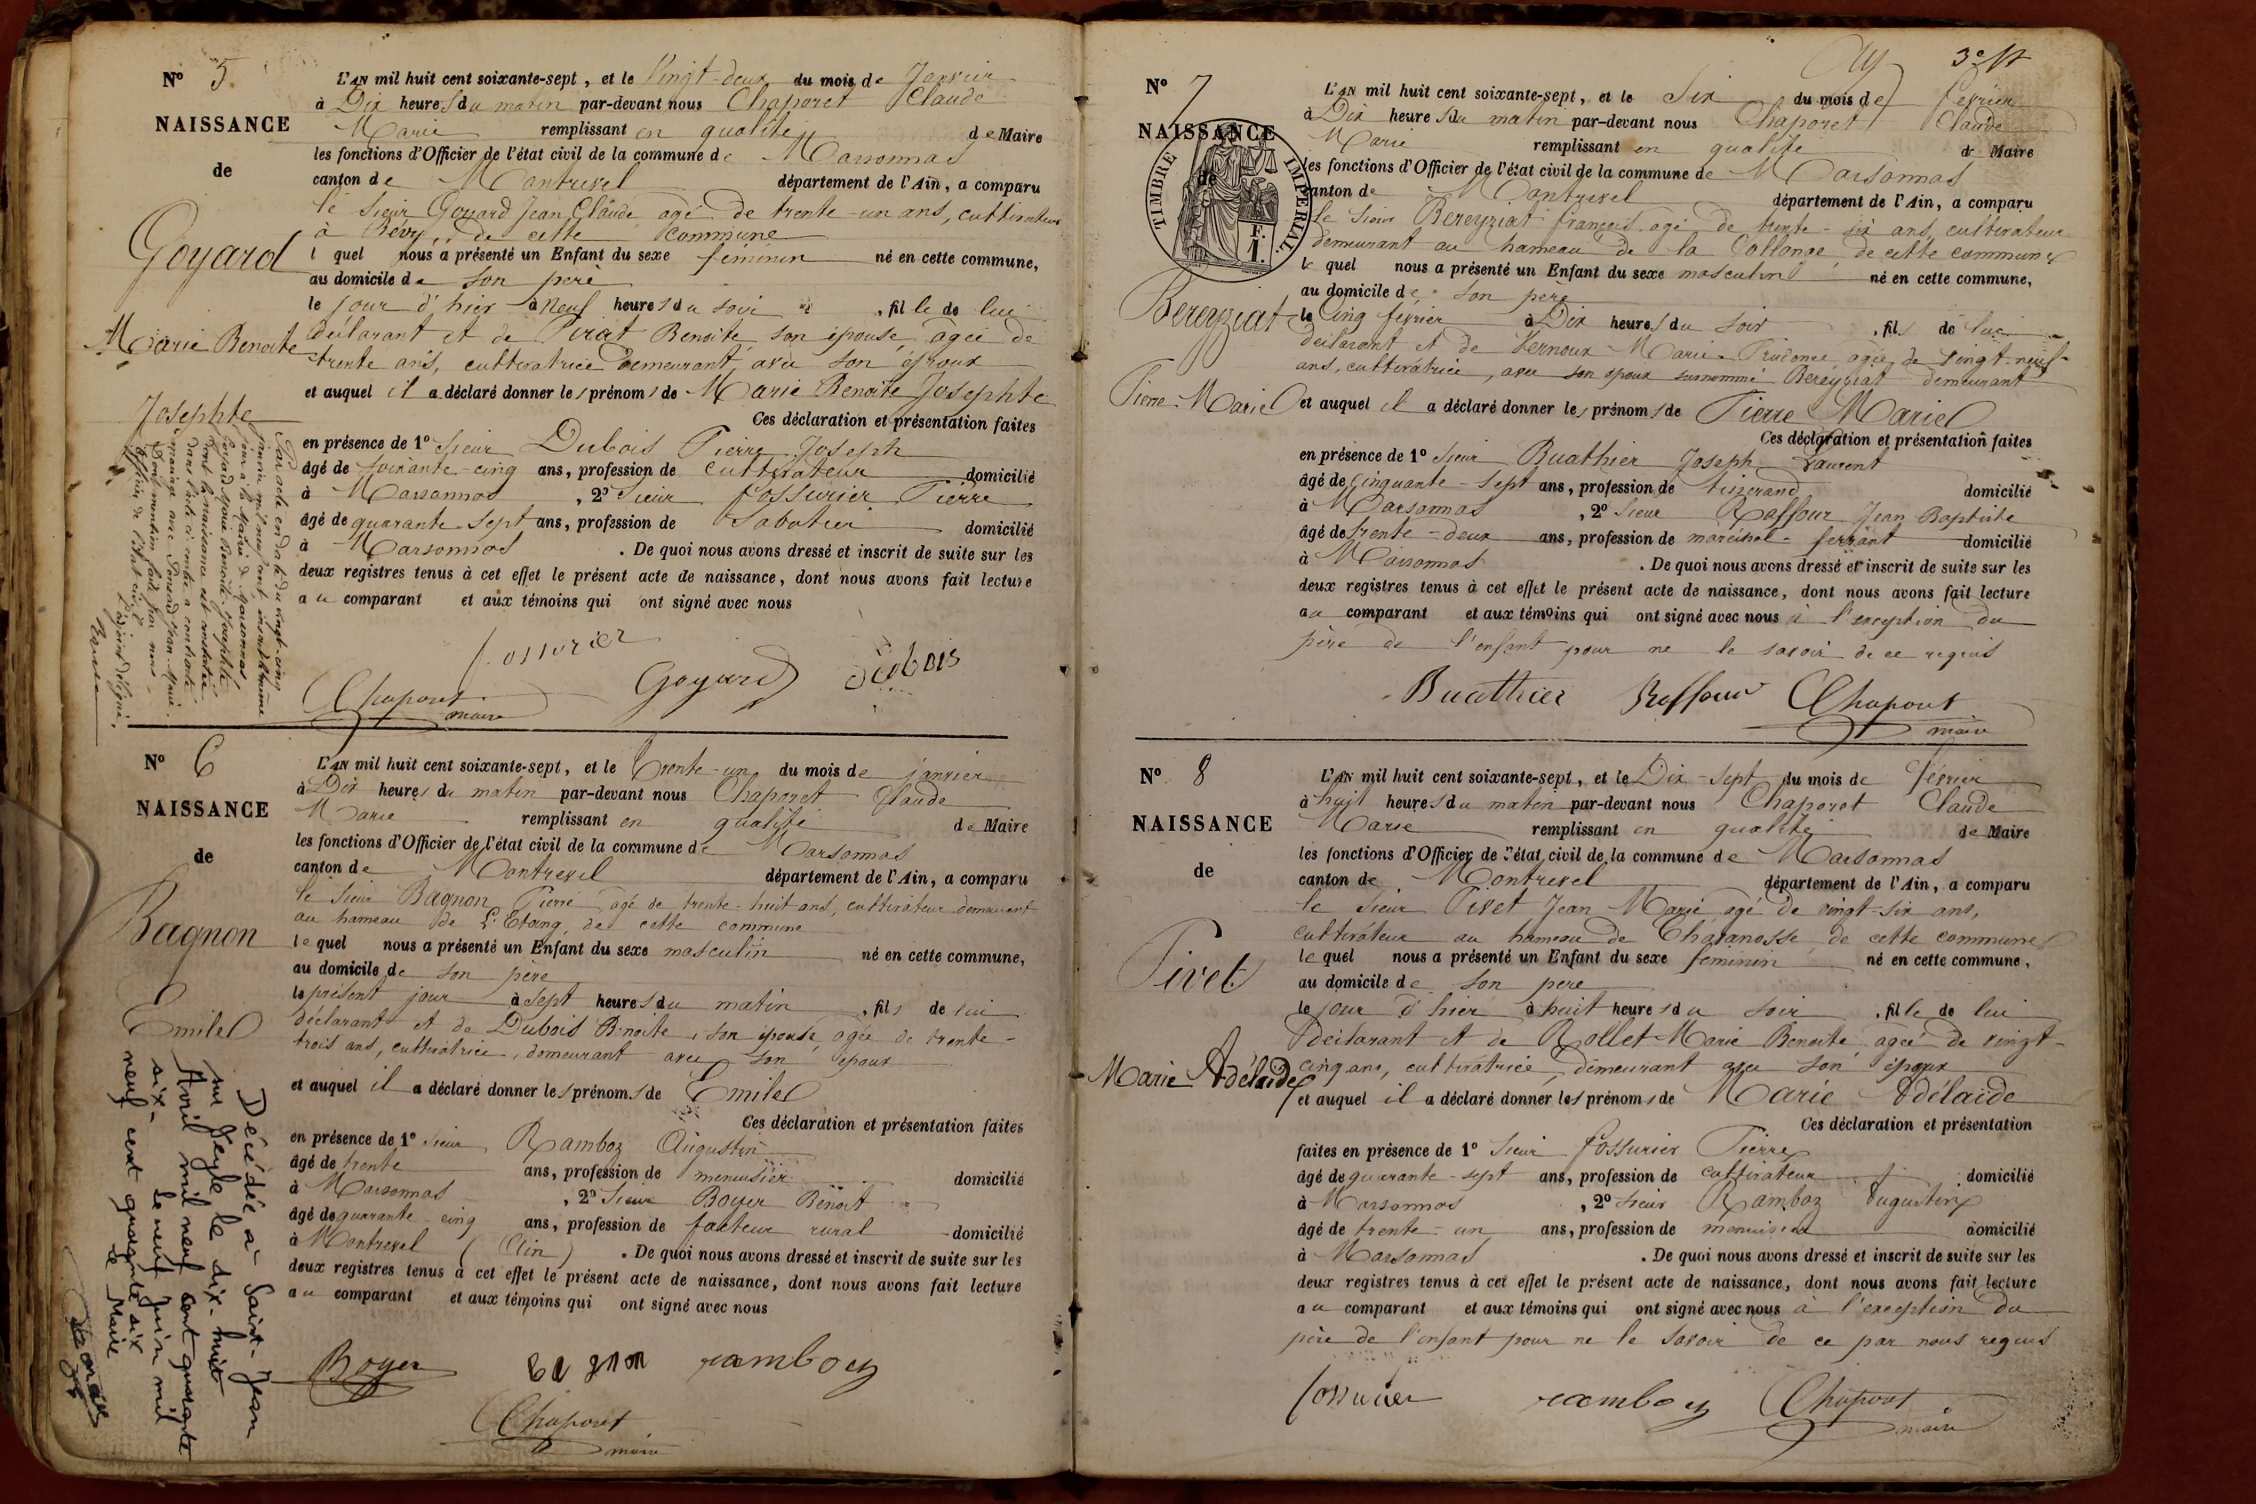 N° 5
NAISSANCE
de
Goyard
Marie Benoite
Josephte
L'AN mil huit cent soixante-sept, et le Vingt-deux du mois de Janvier
à Dix heures du matin par-devant nous Chaporet Claude
Marie remplissant en qualité de Maire
les fonctions d'Officier de l'état civil de la commune de Marsonnas
canton de Montrevel département de l'Ain, a comparu
le sieur Goyard Jean Claude agé de trente-un ans, cultivateur
à Bévy, de cette commune
l quel nous a présenté un Enfant du sexe féminin né en cette commune,
au domicile de son père
le jour d'hier à neuf heures du soir, fille de lui
déclarant et de Pirat Benoite son épouse, agée de
trente ans, cultivatrice demeurant avec son époux
et auquel il a déclaré donner les prénoms de Marie Benoite Josephte
Ces déclaration et présentation faites
en présence de 1° sieur Dubois Pierre Joseph
âgé de soixante-cinq ans, profession de cultivateur domicilié
à Marsonnas, 2° sieur fossurier Pierre
âgé de quarante-sept ans, profession de sabotier domicilié
à Marsonnas. De quoi nous avons dressé et inscrit de suite sur les
deux registres tenus à cet effet le présent acte de naissance, dont nous avons fait lecture
au comparant et aux témoins qui ont signé avec nous
fossurier
Chaporet Goyard dubois
maire
Par acte en date du vingt-cinq
janvier mil neuf cent
à la Mairie de Marsonnas
Goyard Marie Benoite Josephte
dont la naissance est constatée
dans l'acte ci-contre a contracté
mariage avec Jean-Marie.
Dont mention faite par nous
officier de l'état civil
L'adjoint délégué,
N° 6
NAISSANCE
de
Bagnon
Emile
L'AN mil huit cent soixante-sept, et le Trente-un du mois de janvier
à Dix heures du matin par-devant nous Chaporet Claude
Marie remplissant en qualité de Maire
les fonctions d'Officier de l'état civil de la commune de Marsonnas
canton de Montrevel département de l'Ain, a comparu
le sieur Bagnon Pierre agé de trente-huit ans, cultivateur demeurant
au hameau de L'Etang, de cette commune
lequel nous a présenté un Enfant du sexe masculin né en cette commune,
au domicile de son père
le présent jour à sept heures du matin, fils de lui
déclarant et de Dubois Benoite, son épouse, agée de trente-
trois ans, cultivatrice, demeurant avec son époux
et auquel il a déclaré donner les prénoms de Emile
Ces déclaration et présentation faites
en présence de 1° sieur Ramboz Augustin
âgé de trente ans, profession de menuisier domicilié
à Marsonnas, 2° sieur Boyer Benoit
âgé de quarante-cinq ans, profession de facteur rural domicilié
à Montrevel (Ain). De quoi nous avons dressé et inscrit de suite sur les
deux registres tenus à cet effet le présent acte de naissance, dont nous avons fait lecture
au comparant et aux témoins qui ont signé avec nous
Boyer Bagnon ramboz
Chaporet
maire
Décédé à Saint-Jean
sur Veyle le dix-huit
Avril mil neuf cent quarante
six - le neuf juin mil
neuf cent quarante six
Le Maire
3e ft
N° 7
NAISSANCE
de
TIMBRE IMPÉRIAL.
F.
1.
Bereyziat
Pierre Marie
L'AN mil huit cent soixante-sept, et le Six du mois de février
à Dix heures du matin par-devant nous Chaporet Claude
Marie remplissant en qualité de Maire
les fonctions d'Officier de l'état civil de la commune de Marsonnas
canton de Montrevel département de l'Ain, a comparu
le sieur Bereyziat françois agé de trente-six ans, cultivateur
demeurant au hameau de la Collonge de cette commune
le quel nous a présenté un Enfant du sexe masculin né en cette commune,
au domicile de son père
le cinq février à Dix heures du soir, fils de lui
déclarant et de Vernoux Marie Prudence agée de vingt-neuf
ans, cultivatrice, avec son époux surnommé Bereyziat demeurant
et auquel il a déclaré donner les prénoms de Pierre Marie
Ces déclaration et présentation faites
en présence de 1° sieur Buathier Joseph Laurent
âgé de cinquante-sept ans, profession de tisserand domicilié
à Marsonnas, 2° sieur Raffour Jean Baptiste
âgé de trente-deux ans, profession de maréchal-ferrant domicilié
à Marsonnas. De quoi nous avons dressé et inscrit de suite sur les
deux registres tenus à cet effet le présent acte de naissance, dont nous avons fait lecture
au comparant et aux témoins qui ont signé avec nous à l'exception du
père de l'enfant pour ne le savoir de ce requis
Buathier Raffour Chaporet
maire
N° 8
NAISSANCE
de
Pivet
Marie Adélaide
L'AN mil huit cent soixante-sept, et le Dix-sept du mois de février
à huit heures du matin par-devant nous Chaporet Claude
Marie remplissant en qualité de Maire
les fonctions d'Officier de l'état civil de la commune de Marsonnas
canton de Montrevel département de l'Ain, a comparu
le sieur Pivet Jean Marie agé de vingt-six ans,
cultivateur au hameau de Chavanosse de cette commune
lequel nous a présenté un Enfant du sexe féminin né en cette commune,
au domicile de son père
le jour d'hier à huit heures du soir, fille de lui
déclarant et de Rollet Marie Benoite agée de vingt-
cinq ans, cultivatrice, demeurant avec son époux
et auquel il a déclaré donner les prénoms de Marie Adélaide
Ces déclaration et présentation
faites en présence de 1° sieur fossurier Pierre
âgé de quarante-sept ans, profession de cultivateur domicilié
à Marsonnas, 2° sieur Ramboz Augustin
âgé de trente-un ans, profession de menuisier domicilié
à Marsonnas. De quoi nous avons dressé et inscrit de suite sur les
deux registres tenus à cet effet le présent acte de naissance, dont nous avons fait lecture
au comparant et aux témoins qui ont signé avec nous à l'exception du
père de l'enfant pour ne le savoir de ce par nous requis
fossurier ramboz Chaporet
maire